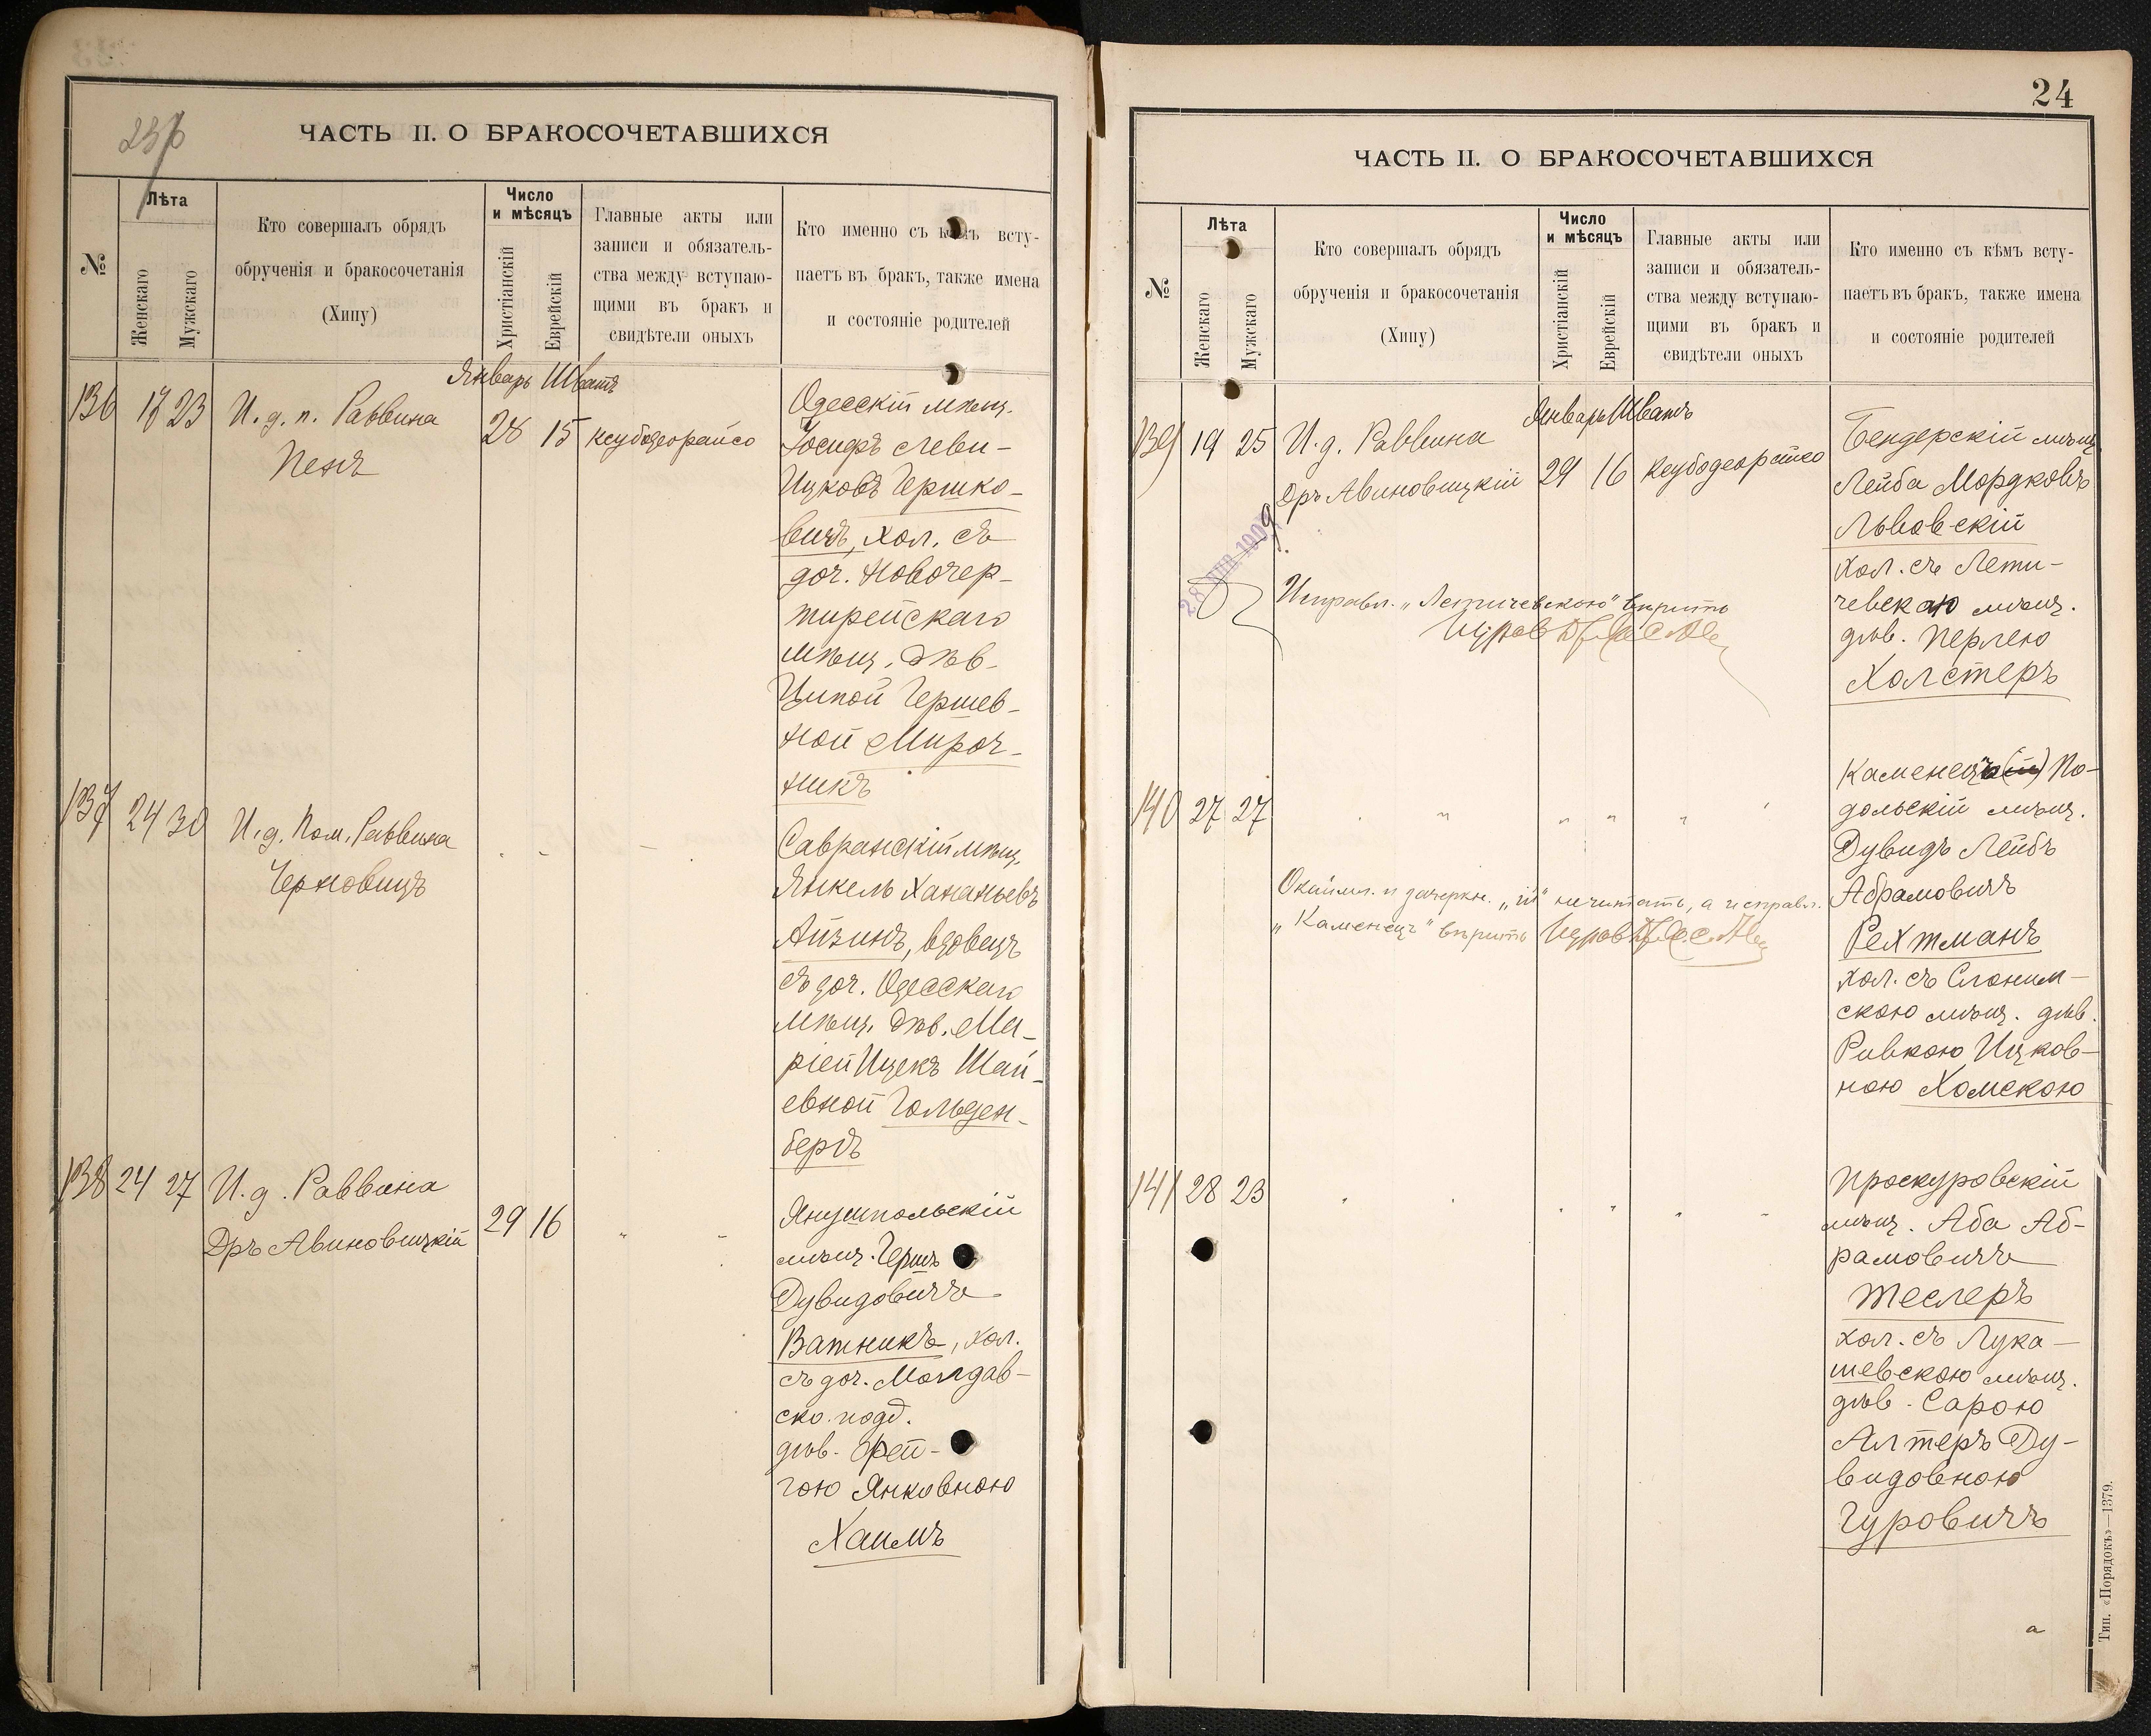 236
ЧАСТЬ II. О БРАКОСОЧЕТАВШИХСЯ
№
Лѣта
Женскаго
Мужскаго
Кто совершалъ обрядъ
обрученія и бракосочетанія
(Хипу)
Число
и мѣсяцъ
Христіанскій
Еврейскій
Главные акты или
записи и обязатель-
ства между вступаю-
щими въ бракъ и
свидѣтели оныхъ
Кто именно съ кѣмъ всту-
паетъ въ бракъ, также имена
и состояніе родителей
Январь Шватъ
136 17 23 И. д. п. Раввина
Пенъ
28 15 ксубодеорайсо
Одесскій мѣщ.
Іосифъ Леви-
Ицковъ Гершко-
вичъ, хол. съ
доч. Новочер-
тирейскаго
мѣщ. дѣв.
Ципой Гершев-
ной Мироч-
никъ
137 24 30 И. д. Пом. Раввина
Черновицъ
Савранскій мѣщ.
Янкель Хананьевъ
Айзинъ, вдовецъ
съ доч. Одесскаго
мѣщ. дѣв. Ма-
ріей Ицекъ Шай-
евной Гольден-
бергъ
138 24 27 И. д. Раввина
Дръ Авиновицкій
29 16 " "
Янушпольскій
мѣщ. Гершъ
Дувидовичъ
Ватникъ, хол.
съ доч. Молдав-
ско. подд.
дѣв. Фей-
гою Янковною
Хаимъ
24
ЧАСТЬ II. О БРАКОСОЧЕТАВШИХСЯ
№
Лѣта
Женскаго
Мужскаго
Кто совершалъ обрядъ
обрученія и бракосочетанія
(Хипу)
Число
и мѣсяцъ
Христіанскій
Еврейскій
Главные акты или
записи и обязатель-
ства между вступаю-
щими въ бракъ и
свидѣтели оныхъ
Кто именно съ кѣмъ всту-
паетъ въ бракъ, также имена
и состояніе родителей
Январь Шватъ
139 19 25 И. д. Раввина
Дръ Авиновицкій
29 16 ксубодеорайсо
Исправл. „Летичевскою" вѣрить
Бендерскій мѣщ.
Лейба Мордковъ
Львовскій
хол. съ Лети-
чевскою мѣщ.
дѣв. Перлею
Холстеръ
140 27 27 " " " " "
Окаймл. и зачеркн. „ій" не читать, а исправл.
„Каменецъ" вѣрить
Каменецъ(ій) По-
дольскій мѣщ.
Дувидъ Лейбъ
Абрамовичъ
Рехтманъ
хол. съ Слоним-
скою мѣщ. дѣв.
Ривкою Ицков-
ною Хомскою
141 28 23 " " " " "
Проскуровскій
мѣщ. Аба Аб-
рамовичъ
Теслеръ
хол. съ Лука-
шевскою мѣщ.
дѣв. Сарою
Алтеръ Ду-
видовною
Гуровичъ
Тип. «Порядокъ»—1379.